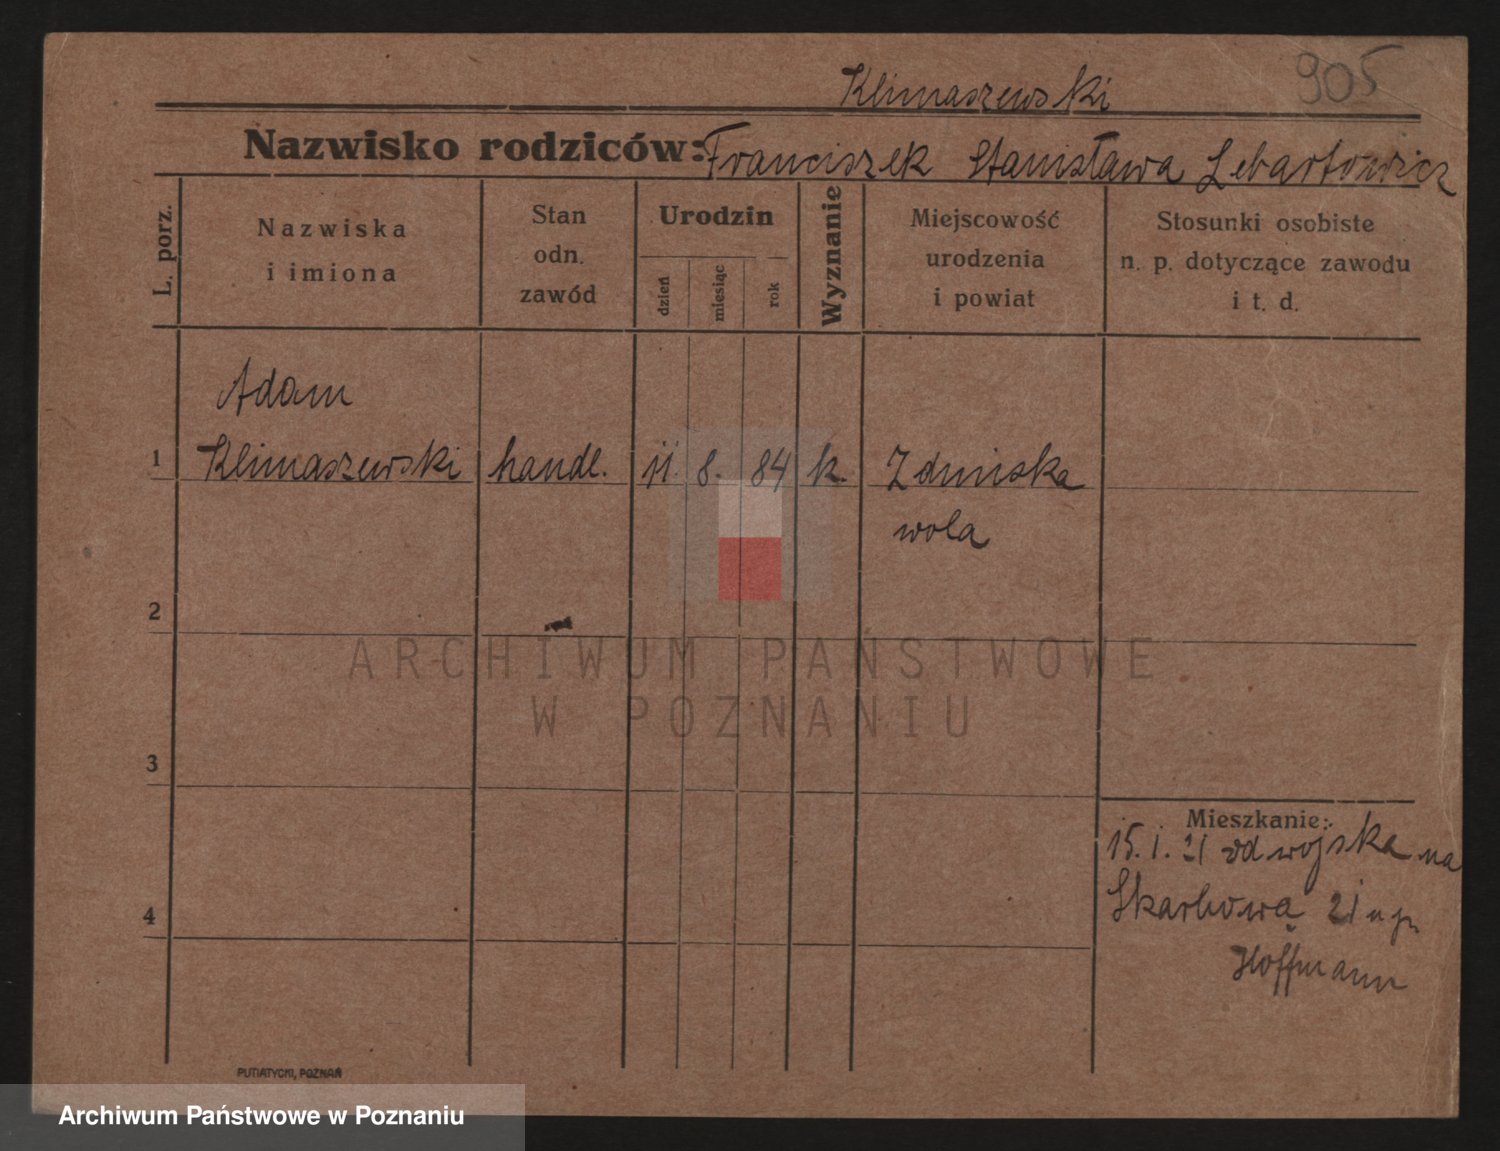 905
Klimaszewski
Nazwisko rodziców: Franciszek Stanisława Lebartowicz
L. porz.
Nazwiska
i imiona
Stan
odn.
zawód
Urodzin
dzień
miesiąc
rok
Wyznanie
Miejscowość
urodzenia
i powiat
Stosunki osobiste
n. p. dotyczące zawodu
i t. d.
Adam
1 Klimaszewski handl. 11. 8. 84 k. Zduńska
wola
2
ARCHIWUM PAŃSTWOWE
W POZNANIU
3
Mieszkanie:
15. I. 21 od wojska na
4
Skarbową 21 u p.
Hoffmann
PUTIATYCKI, POZNAŃ
Archiwum Państwowe w Poznaniu